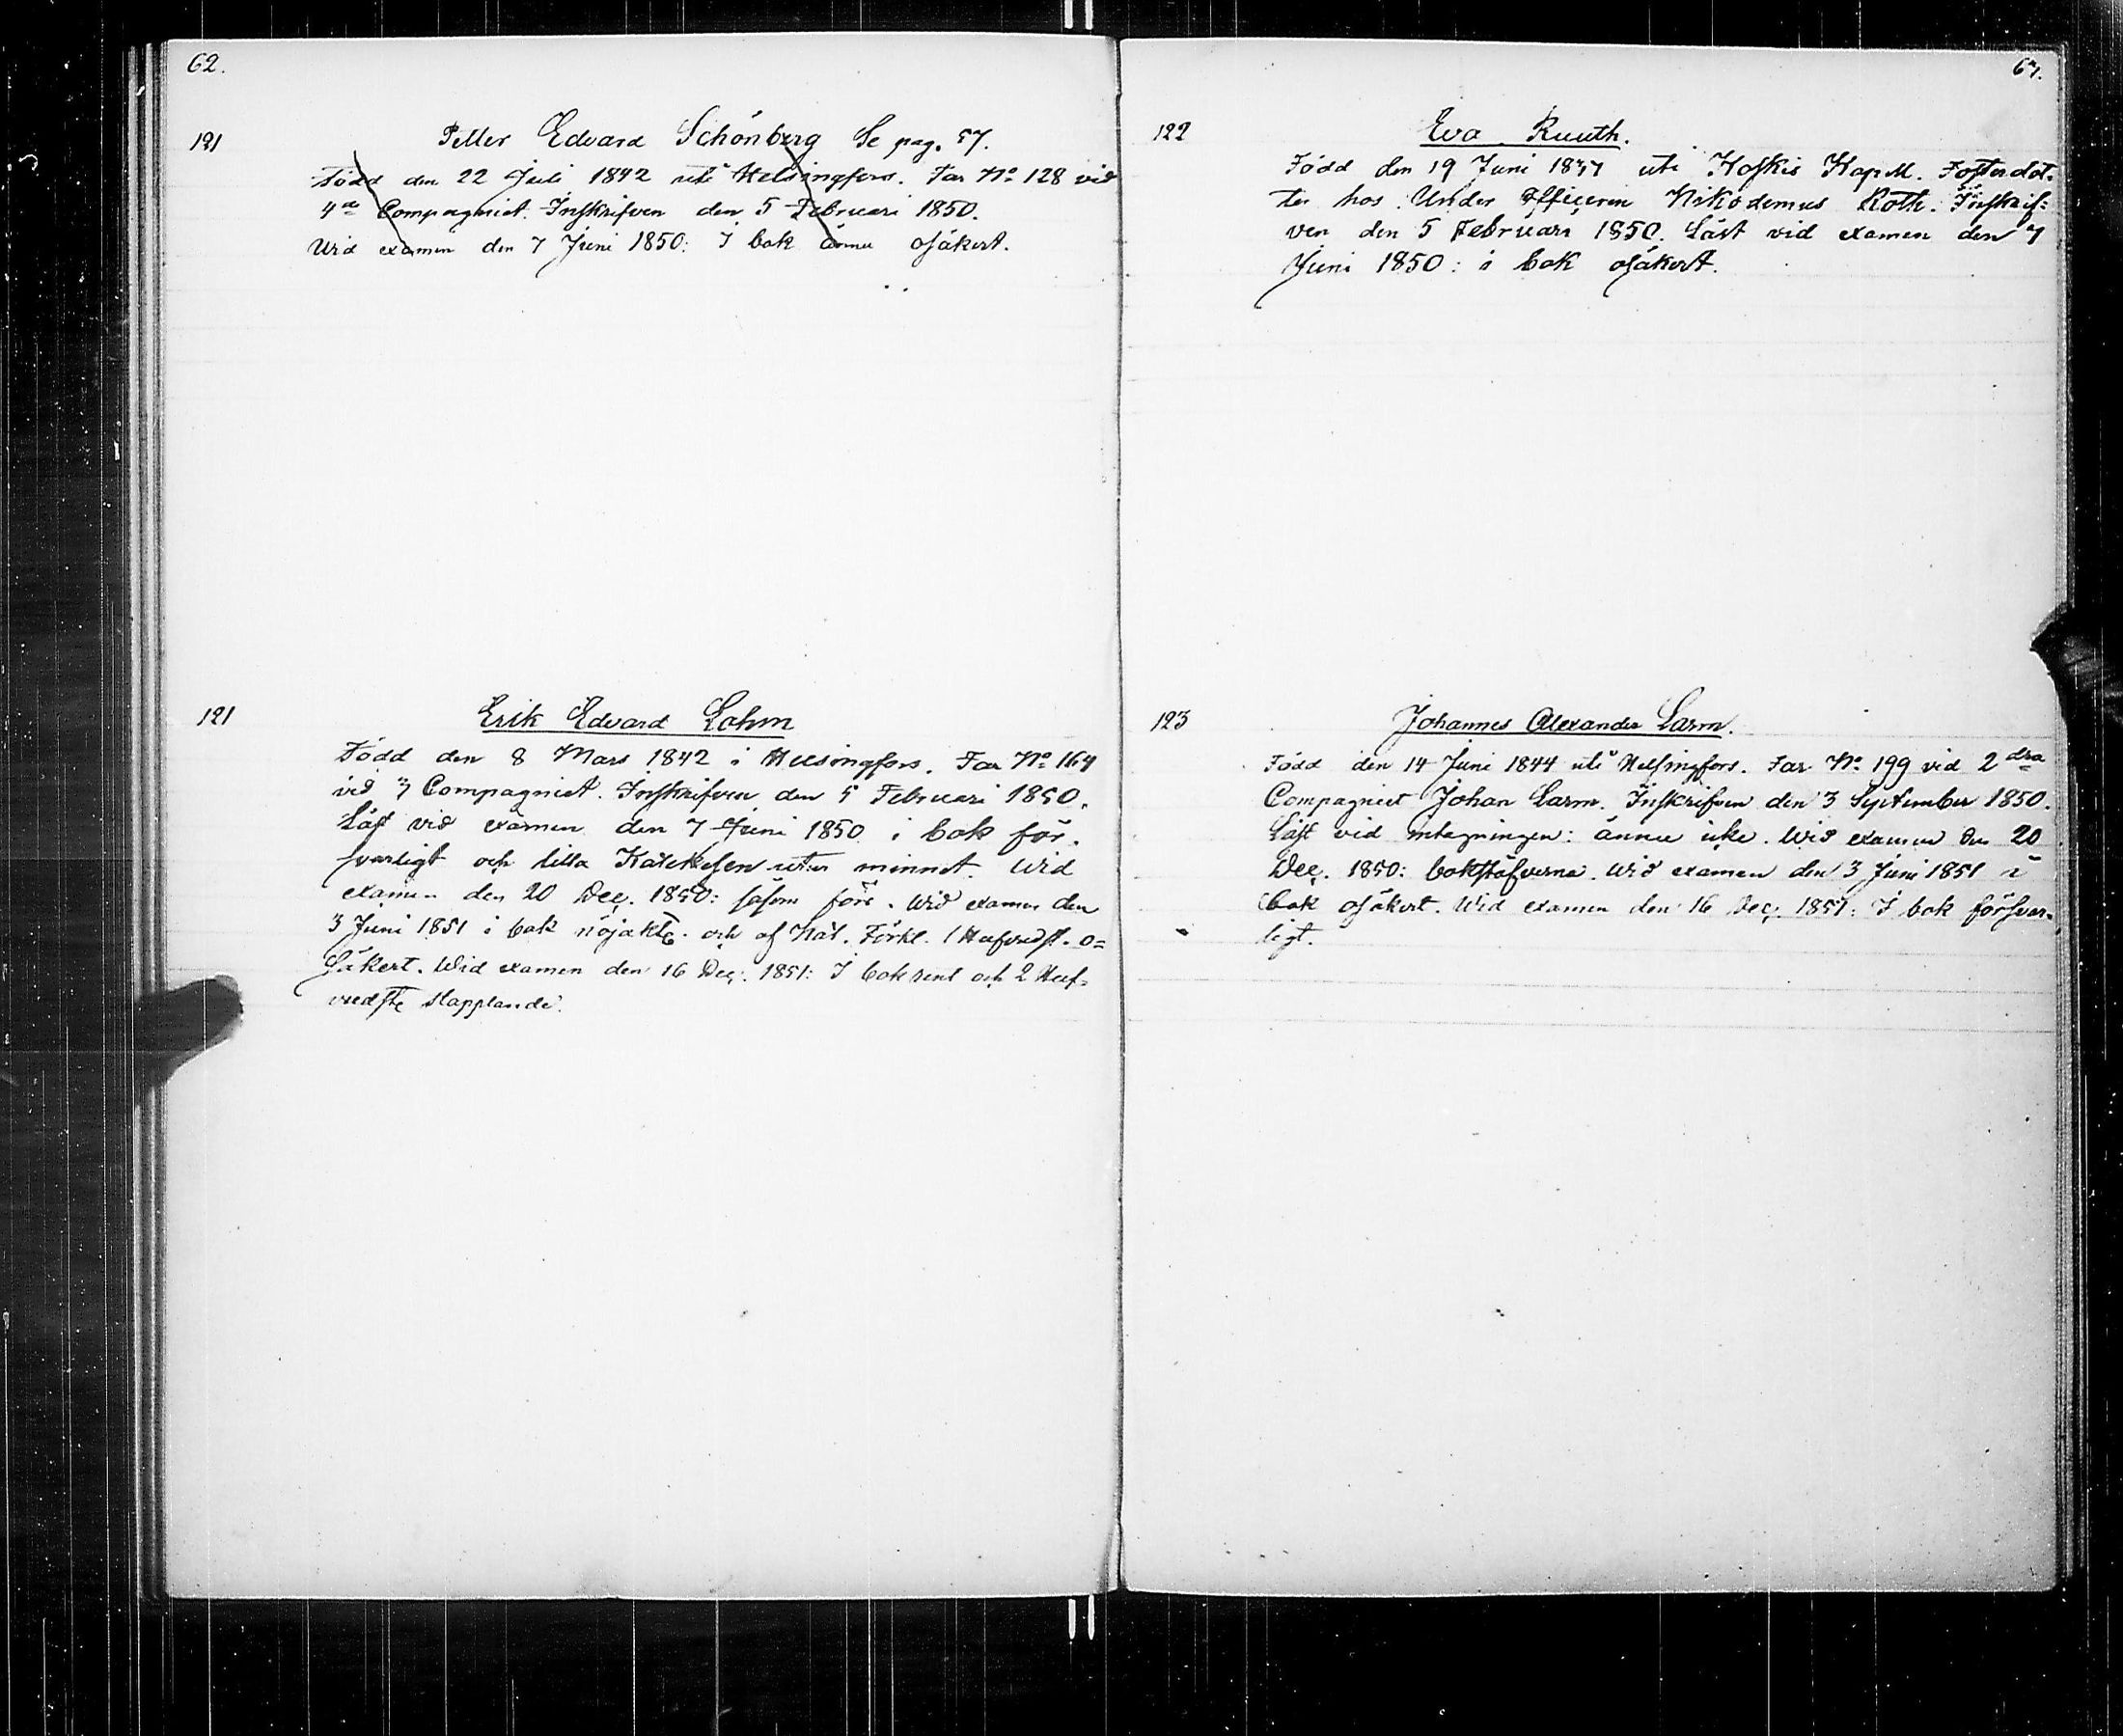 62.
121
Petter Edvard Schönberg Se pag. 57.
Född den 22 Juli 1842 uti Helsingfors. Far No 128 vid
4de Compagniet. Inskrifven den 5 Februari 1850.
Wid examen den 7 Juni 1850: I bok ännu osäkert.
121
Erik Edvard Lohm
Född den 8 Mars 1842 i Helsingfors. Far No 164
vid 3 Compagniet. Inskrifven den 5 Februari 1850.
Läst vid examen den 7 Juni 1850 i bok för-
svarligt och lilla Katekesen utur minnet. Wid
examen den 20 Dec. 1850: såsom förr. Wid examen den
3 Juni 1851 i bok nöjakte. och af Kat. Förkl. 1 Hufvudst. o=
säkert. Wid examen den 16 Dec. 1851: I bok rent och 2 Huf=
vudste stapplande.
63.
122
Eva Ruuth.
Född den 19 Juni 1837 uti Hoskis Kap M. Fosterdot-
ter hos Under Officeren Nikodemus Roth. Inskrif=
ven den 5 Februari 1850. Läst vid examen den 7
Juni 1850: i bok osäkert.
123
Johannes Alexander Larm.
Född den 14 Juni 1844 uti Helsingfors. Far No. 199 vid 2dra
Compagniet Johan Larm. Inskrifven den 3 September 1850.
Läst vid intagningen: ännu icke. Wid examen den 20
Dec. 1850: bokstäfverna. Wid examen den 3 Juni 1851 i
bok osäkert. Wid examen den 16 Dec. 1851: I bok försvar-
ligt.